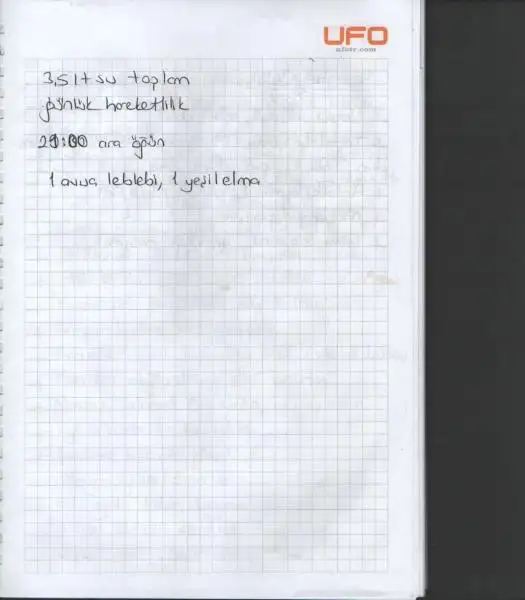 UFO
ufotr.com
3,5 lt su toplam
günlük hareketlilik
21:00 ara öğün
1 avuç leblebi, 1 yeşil elma